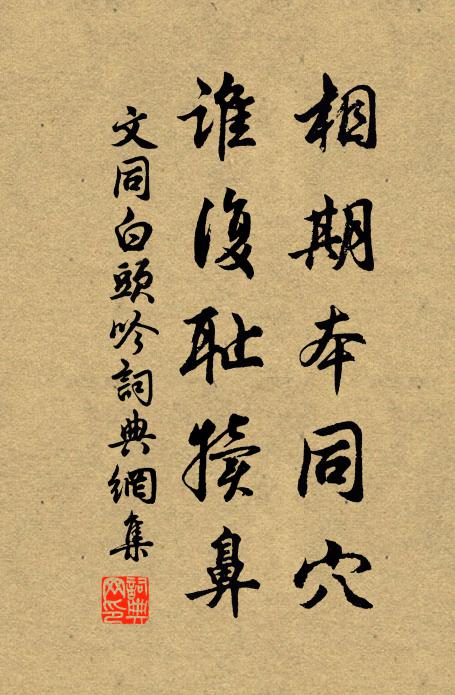 相期本同穴
谁復耻犢鼻
文同白頭吟詞典網集
詞典網印